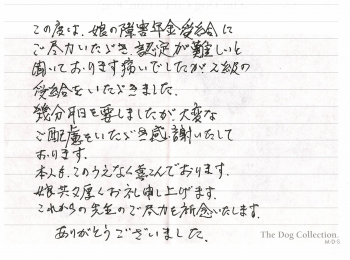 この度は、娘の障害年金受給に
ご尽力いただき、認定が難しいと
聞いております痛いでしたが2級の
受給をいただきました。
幾分年月を要しましたが大変な
ご配慮をいただき感謝いたして
おります。
本人も、このうえなく喜こんでおります。
娘共々厚くお礼申し上げます。
これからの先生のご尽力を祈念いたします。
ありがとうございました。
The Dog Collection.
M・D・S